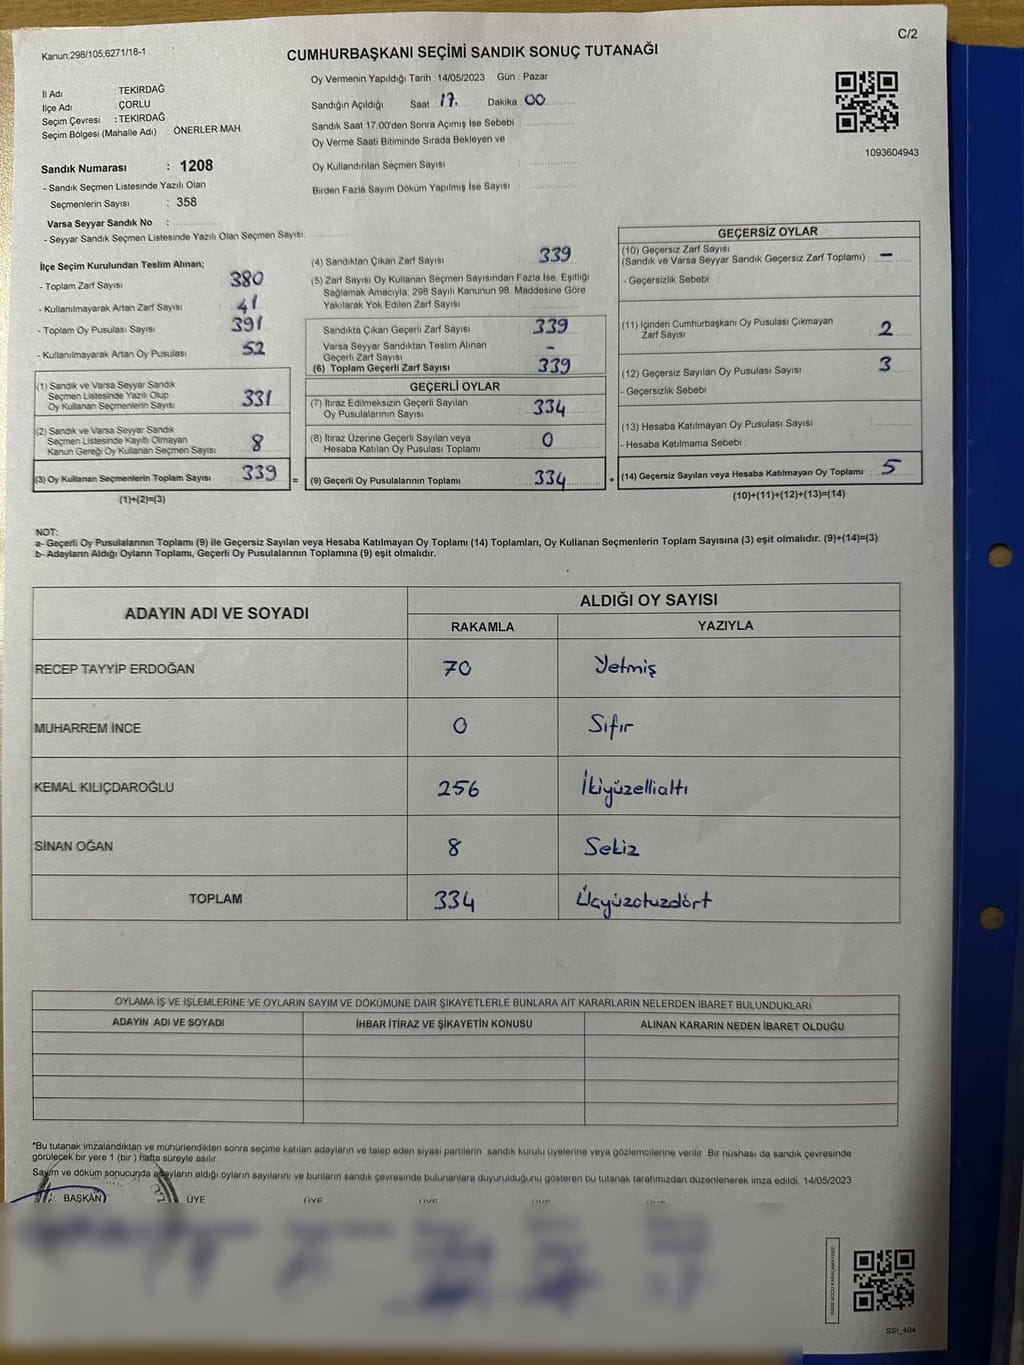 C/2
Kanun:298/105;6271/18-1
CUMHURBAŞKANI SEÇİMİ SANDIK SONUÇ TUTANAĞI
Oy Vermenin Yapıldığı Tarih : 14/05/2023 Gün : Pazar
İl Adı : TEKİRDAĞ
İlçe Adı : ÇORLU
Seçim Çevresi : TEKİRDAĞ
Seçim Bölgesi (Mahalle Adı) : ÖNERLER MAH.
Sandığın Açıldığı Saat : 17 Dakika : 00
Sandık Saat 17.00'den Sonra Açımış İse Sebebi :
Oy Verme Saati Bitiminde Sırada Bekleyen ve
Oy Kullandırılan Seçmen Sayısı
Birden Fazla Sayım Döküm Yapılmış İse Sayısı :
1093604943
Sandık Numarası : 1208
- Sandık Seçmen Listesinde Yazılı Olan
Seçmenlerin Sayısı : 358
Varsa Seyyar Sandık No :
- Seyyar Sandık Seçmen Listesinde Yazılı Olan Seçmen Sayısı:
İlçe Seçim Kurulundan Teslim Alınan;
- Toplam Zarf Sayısı 380
- Kullanılmayarak Artan Zarf Sayısı 41
- Toplam Oy Pusulası Sayısı 391
- Kullanılmayarak Artan Oy Pusulası 52
(1) Sandık ve Varsa Seyyar Sandık
Seçmen Listesinde Yazılı Olup
Oy Kullanan Seçmenlerin Sayısı 331
(2) Sandık ve Varsa Seyyar Sandık
Seçmen Listesinde Kayıtlı Olmayan
Kanun Gereği Oy Kullanan Seçmen Sayısı 8
(3) Oy Kullanan Seçmenlerin Toplam Sayısı 339 =
(1)+(2)=(3)
(4) Sandıktan Çıkan Zarf Sayısı 339
(5) Zarf Sayısı Oy Kullanan Seçmen Sayısından Fazla İse, Eşitliği
Sağlamak Amacıyla, 298 Sayılı Kanunun 98. Maddesine Göre
Yakılarak Yok Edilen Zarf Sayısı
Sandıkta Çıkan Geçerli Zarf Sayısı 339
Varsa Seyyar Sandıktan Teslim Alınan
Geçerli Zarf Sayısı -
(6) Toplam Geçerli Zarf Sayısı 339
GEÇERLİ OYLAR
(7) İtiraz Edilmeksizin Geçerli Sayılan
Oy Pusulalarının Sayısı 334
(8) İtiraz Üzerine Geçerli Sayılan veya
Hesaba Katılan Oy Pusulası Toplamı 0
(9) Geçerli Oy Pusulalarının Toplamı 334 +
GEÇERSİZ OYLAR
(10) Geçersiz Zarf Sayısı
(Sandık ve Varsa Seyyar Sandık Geçersiz Zarf Toplamı) -
- Geçersizlik Sebebi :
(11) İçinden Cumhurbaşkanı Oy Pusulası Çıkmayan
Zarf Sayısı 2
(12) Geçersiz Sayılan Oy Pusulası Sayısı 3
- Geçersizlik Sebebi :
(13) Hesaba Katılmayan Oy Pusulası Sayısı
- Hesaba Katılmama Sebebi :
(14) Geçersiz Sayılan veya Hesaba Katılmayan Oy Toplamı 5
(10)+(11)+(12)+(13)=(14)
NOT:
a- Geçerli Oy Pusulalarının Toplamı (9) ile Geçersiz Sayılan veya Hesaba Katılmayan Oy Toplamı (14) Toplamları, Oy Kullanan Seçmenlerin Toplam Sayısına (3) eşit olmalıdır. (9)+(14)=(3)
b- Adayların Aldığı Oyların Toplamı, Geçerli Oy Pusulalarının Toplamına (9) eşit olmalıdır.
ADAYIN ADI VE SOYADI
ALDIĞI OY SAYISI
RAKAMLA YAZIYLA
RECEP TAYYİP ERDOĞAN 70 Yetmiş
MUHARREM İNCE 0 Sıfır
KEMAL KILIÇDAROĞLU 256 İkiyüzellialtı
SİNAN OĞAN 8 Sekiz
TOPLAM 334 Üçyüzotuzdört
OYLAMA İŞ VE İŞLEMLERİNE VE OYLARIN SAYIM VE DÖKÜMÜNE DAİR ŞİKAYETLERLE BUNLARA AİT KARARLARIN NELERDEN İBARET BULUNDUKLARI
ADAYIN ADI VE SOYADI İHBAR İTİRAZ VE ŞİKAYETİN KONUSU ALINAN KARARIN NEDEN İBARET OLDUĞU
*Bu tutanak imzalandıktan ve mühürlendikten sonra seçime katılan adayların ve talep eden siyasi partilerin sandık kurulu üyelerine veya gözlemcilerine verilir. Bir nüshası da sandık çevresinde
görülecek bir yere 1 (bir ) hafta süreyle asılır.
Sayım ve döküm sonucunda adayların aldığı oyların sayılarını ve bunların sandık çevresinde bulunanlara duyurulduğunu gösteren bu tutanak tarafımızdan düzenlenerek imza edildi. 14/05/2023
BAŞKAN ÜYE ÜYE ÜYE ÜYE ÜYE
KARE KODU KARALAMAYINIZ!
SSI_404